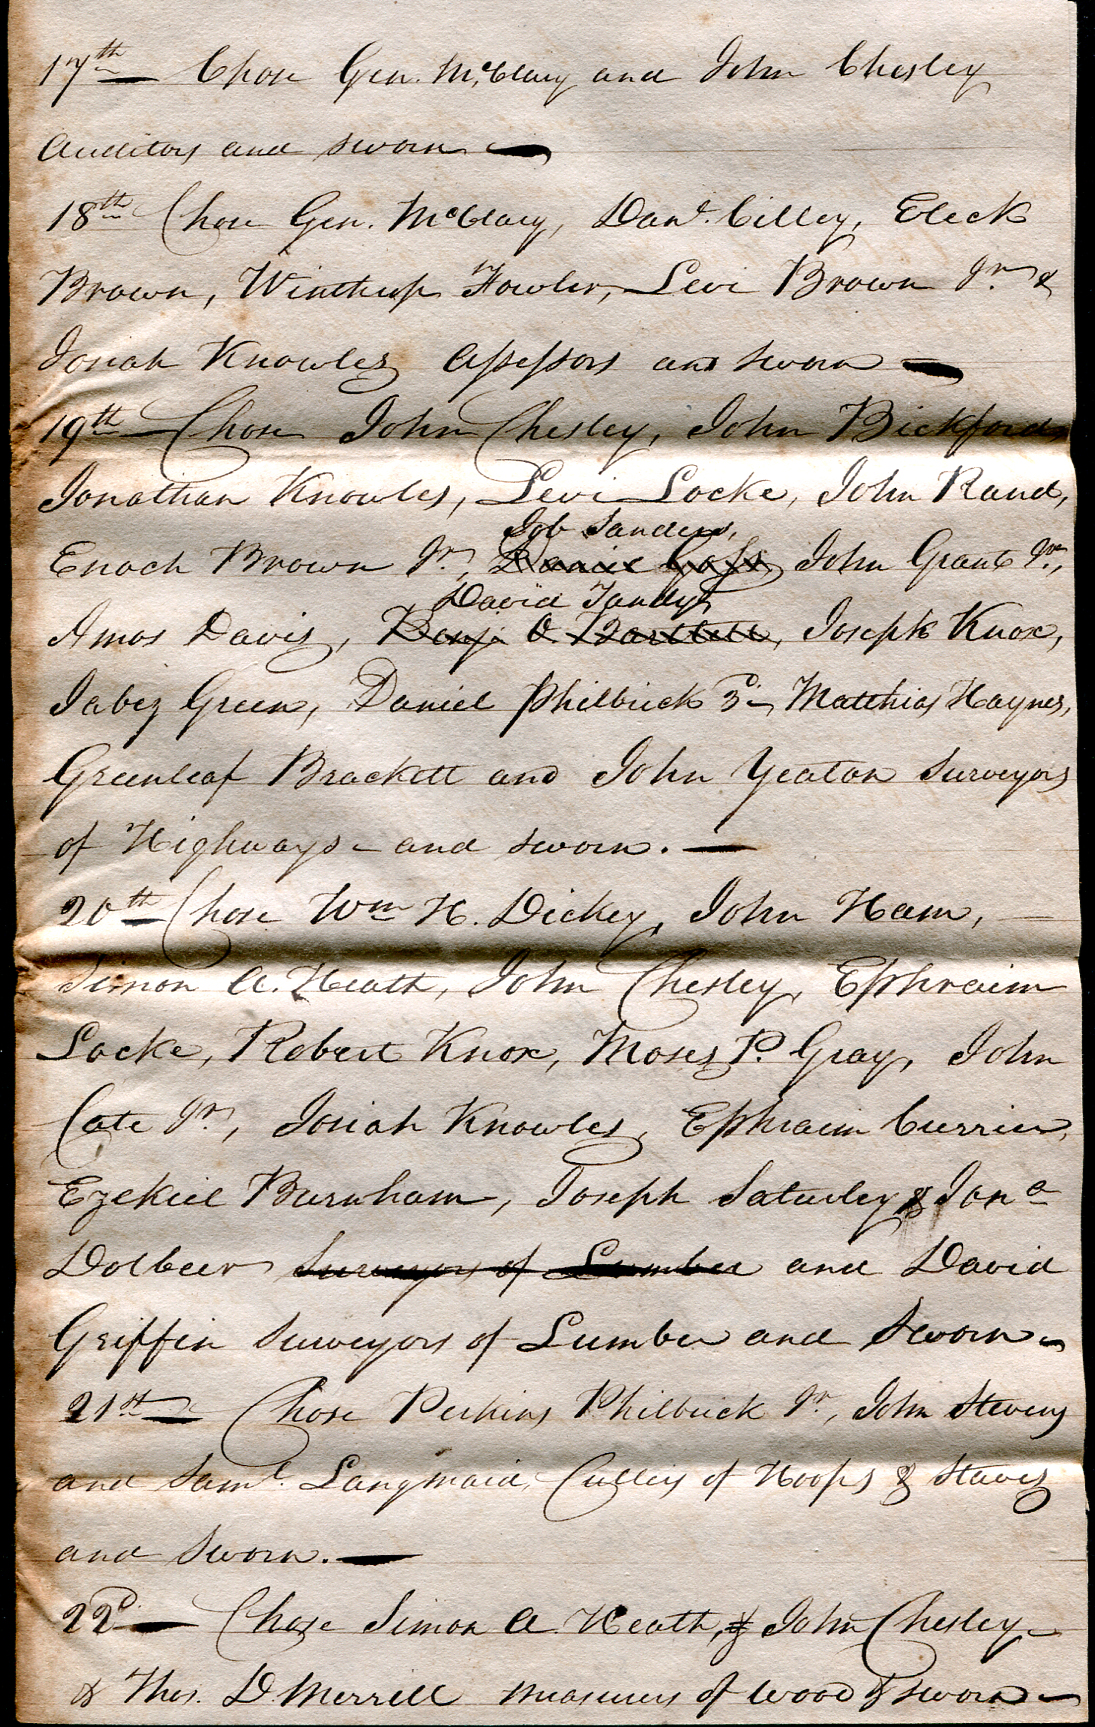 17th — Chose Gen. McClary and John Chesley
Auditors and sworn —
18th Chose Gen. McClary, Danl. Cilley, Eleck
Brown, Winthrop Fowler, Levi Brown Jr. &
Josiah Knowles Assessors and sworn —
19th — Chose John Chesley, John Bickford,
Jonathan Knowles, Levi Locke, John Rand,
Job Sanders,
Enoch Brown Jr., Daniel Goss, John Grant Jr.,
David Tandy
Amos Davis, Benj. O. Bartlett, Joseph Knox,
Jabez Green, Daniel Philbrick 3d, Matthias Haynes,
Greenleaf Brackett and John Yeaton Surveyors
of Highways — and sworn. —
20th Chose Wm H. Dickey, John Ham,
Simon A. Heath, John Chesley, Ephraim
Locke, Robert Knox, Moses P. Gray, John
Cate Jr., Josiah Knowles, Ephraim Currier,
Ezekiel Burnham, Joseph Saturley & Jona
Dolbeer Surveyors of Lumber and David
Griffin Surveyors of Lumber and Sworn —
21st — Chose Perkins Philbrick Jr., John Stevens
and Saml. Langmaid, Cullers of Hoops & Staves
and Sworn. —
22d — Chose Simon A Heath, & John Chesley —
& Thos. D Merrill measurers of wood & sworn —